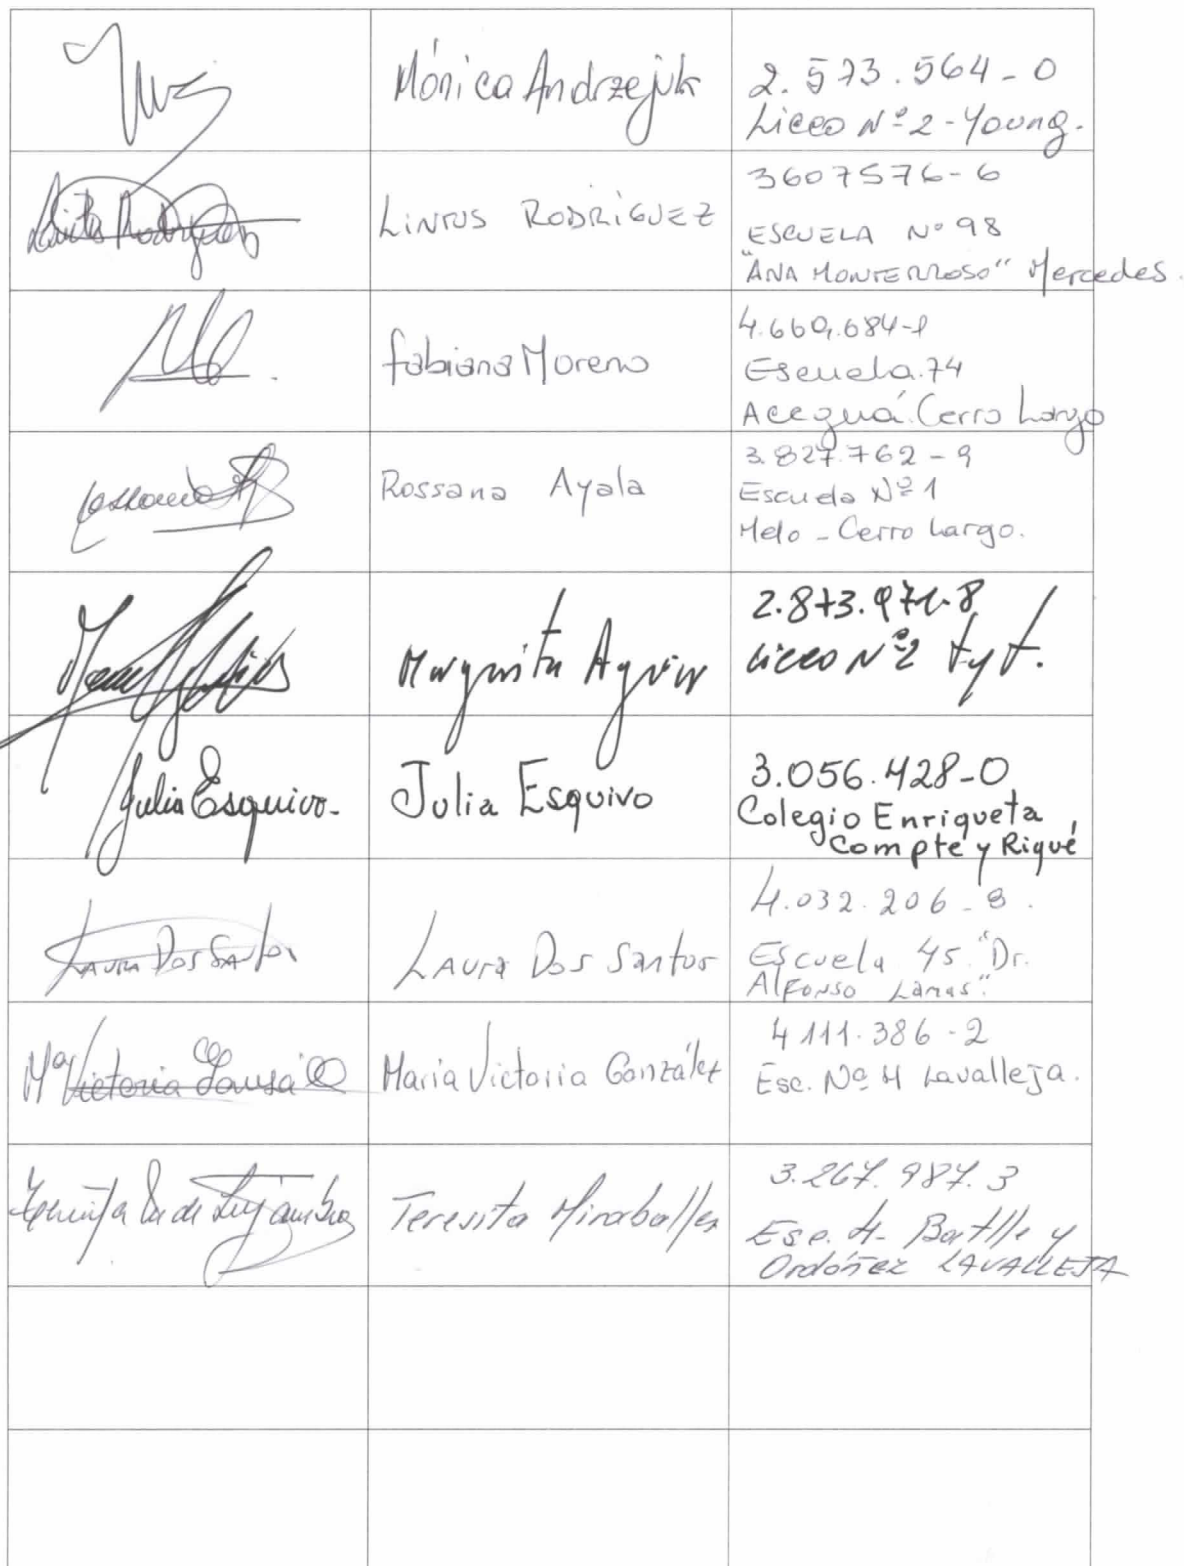 Mónica Andrzejuk
2.573.564-0
Liceo Nº2-Young.
LINTUS RODRÍGUEZ
3607576-6
ESCUELA Nº 98
"ANA MONTERROSO" Mercedes.
fabiana Moreno
4.660.684-1
Escuela.74
Aceguá.Cerro Largo
Rossana Ayala
3.827.762-9
Escuela Nº1
Melo - Cerro Largo.
Margarita
Liceo Nº2 tyt.
Julia Esquivo-
Julia Esquivo
3.056.428-0
Colegio Enriqueta
Compte y Riqué
Laura Dos Santos
Laura Dos Santos
4.032.206-8.
Escuela 45 "Dr.
Alfonso Lamas".
Mª Victoria
María Victoria González
4111.386-2
Esc. Nº 4 Lavalleja.
Teresita Miraballes
3.267.987.3
Esc. 4- Batlle y
Ordóñez LAVALLEJA